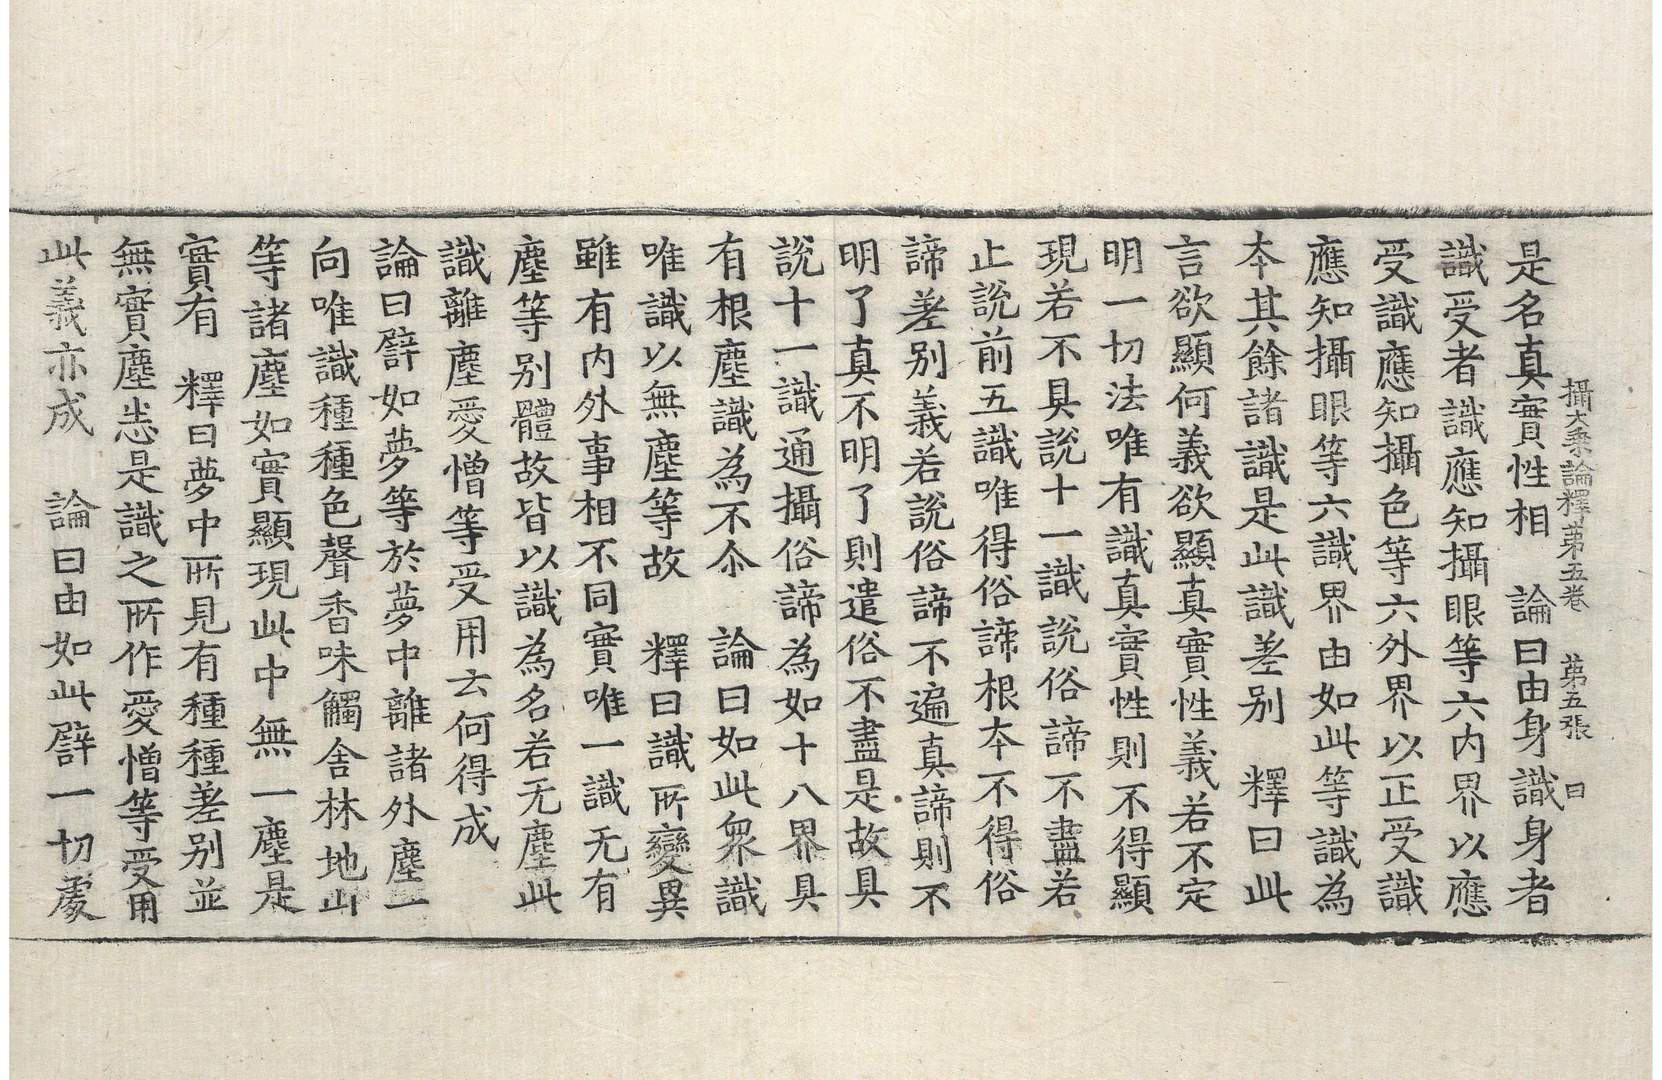 攝大乗論釋苐五卷　苐五張　日
是名真實性相　論曰由身識身者
識受者識應知攝眼等六内界以應
受識應知攝色等六外界以正受識
應知攝眼等六識界由如此等識為
夲其餘諸識是此識差别　釋曰此
言欲顯何義欲顯真實性義若不定
明一切法唯有識真實性則不得顯
現若不具說十一識說俗諦不盡若
止說前五識唯得俗諦根夲不得俗
諦差别義若說俗諦不遍真諦則不
明了真不明了則遣俗不盡是故具
說十一識通攝俗諦為如十八界具
有根塵識為不尒　論曰如此衆識
唯識以無塵等故　釋曰識所變異
雖有内外事相不同實唯一識无有
塵等别體故皆以識為名若无塵此
識離塵愛憎等受用云何得成
論曰譬如夢等於夢中離諸外塵一
向唯識種種色聲香味觸舍林地山
等諸塵如實顯現此中無一塵是
實有　釋曰夢中所見有種種差别並
無實塵悉是識之所作愛憎等受用
此義亦成　論曰由如此譬一切處